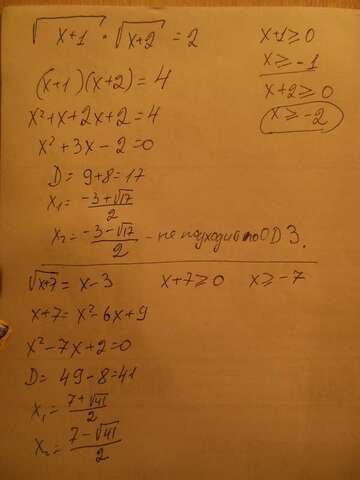 √(x+1) · √(x+2) = 2
x+1 ≥ 0
x ≥ -1
(x+1)(x+2) = 4
x+2 ≥ 0
x ≥ -2
x²+x+2x+2=4
x²+3x-2=0
D = 9+8=17
x₁= (-3+√17)/2
x₂= (-3-√17)/2 - не подходит по ОДЗ.
√(x+7) = x-3 x+7 ≥ 0 x ≥ -7
x+7= x²-6x+9
x²-7x+2=0
D= 49-8=41
x₁= (7+√41)/2
x₂= (7-√41)/2